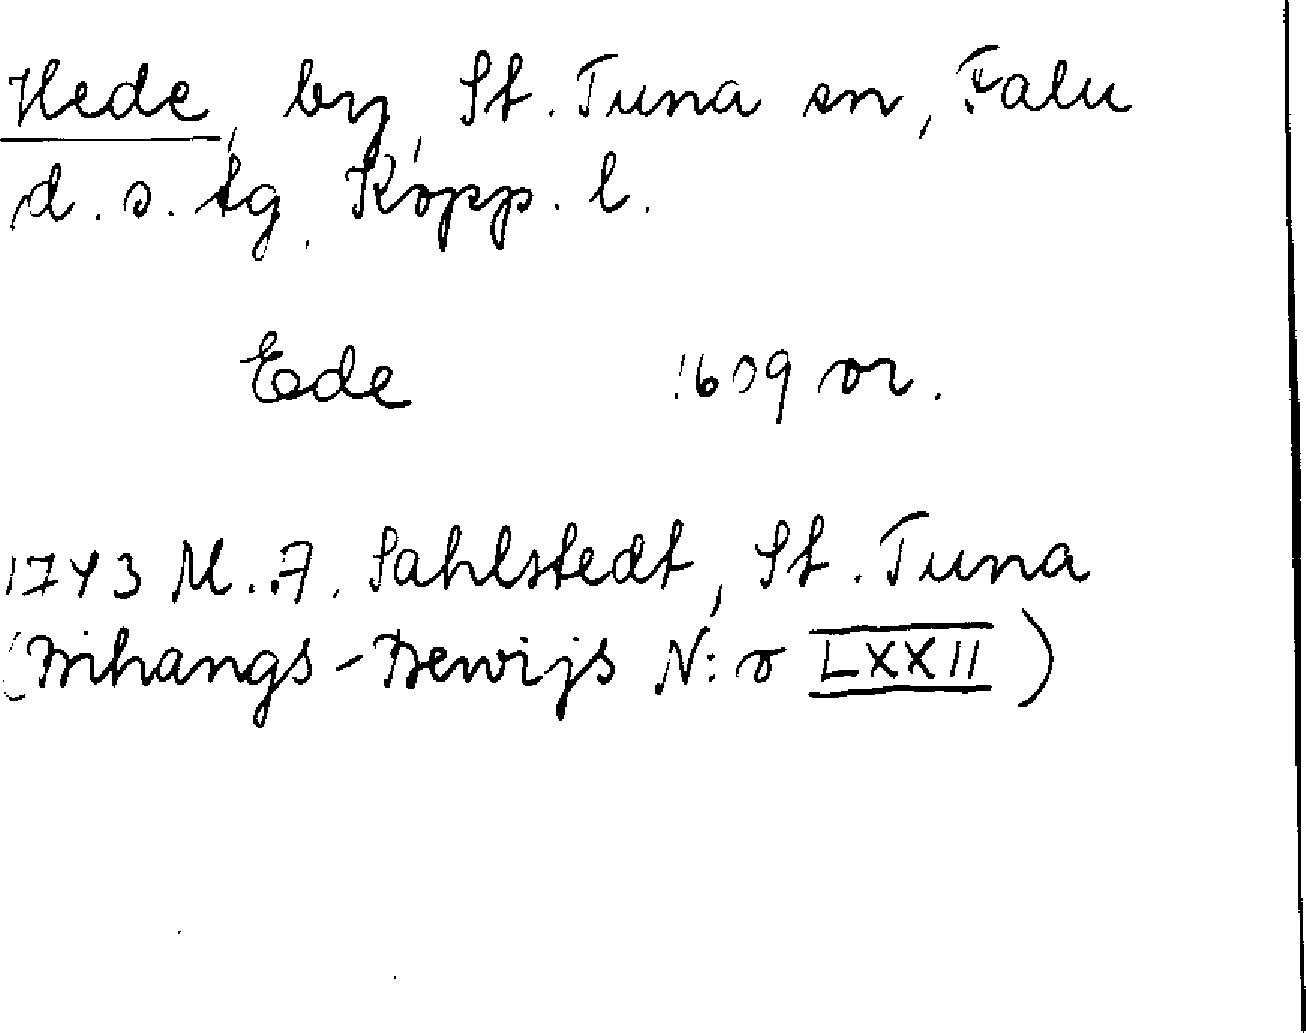 Hede, by, St. Tuna sn, Falu
d. s. tg. Kopp. l.
Ede 1609 or.
1743 M. A. Sahlstedt, St. Tuna
(Bihangs-Bewijs N:o LXXII)